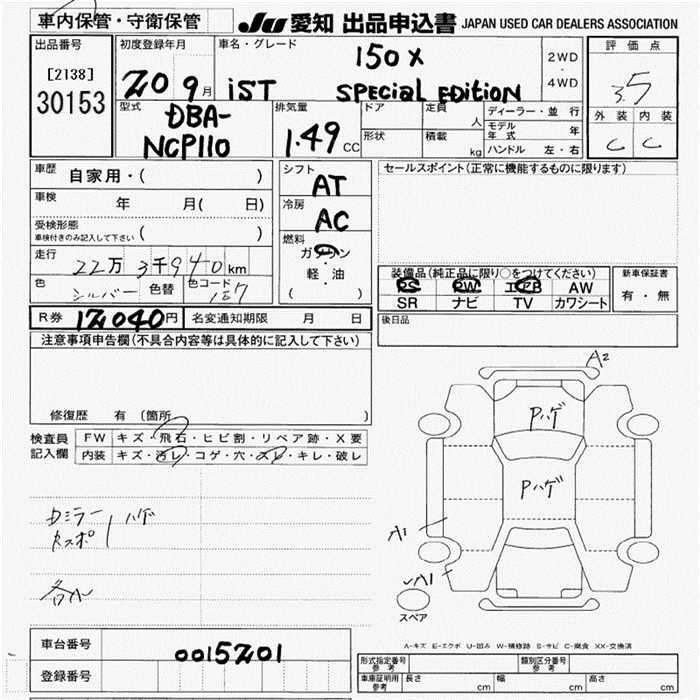 車内保管・守衛保管 JU 愛知 出品申込書 JAPAN USED CAR DEALERS ASSOCIATION
出品番号 初度登録年月 車名・グレード 150X 2WD・4WD 評価点
[2138] 20 9月 iST SPECIAL EDITION 3.5
30153 型式 排気量 ドア 定員 人 ディーラー・並行 外装 内装
DBA-NCP110 1.49 CC 形状 積載 kg モデル年式 年 C C
ハンドル 左・右
車歴 自家用・( ) シフト AT セールスポイント(正常に機能するものに限ります)
車検 年 月( 日) 冷房 AC
受検形態
車検付きのみ記入して下さい
燃料 ガソリン
走行 22万3千940km 軽・油
( )
装備品(純正品に限り○をつけてください) 新車保証書
色 シルバー 色替 色コード 1E7
PS PW エアB AW 有・無
SR ナビ TV カワシート
R券 12040円 名変通知期限 月 日 後日品
注意事項申告欄(不具合内容等は具体的に記入して下さい)
A2
Pハゲ
修復歴 有 (箇所 )
検査員 FW キズ・飛石・ヒビ割・リペア跡・X要
記入欄 内装 キズ・汚レ・コゲ・穴・スレ・キレ・破レ
Pハゲ
Dミラー ハゲ
Rスポ
A1
各ル
A1
スペア
A-キズ E-エクボ U-凹み W-補修跡 S-サビ C-腐食 XX-交換済
車台番号 0015201
型式指定番号 参考 類別区分番号 参考
登録番号
車庫証明用 参考 長さ cm 幅 cm 高さ cm